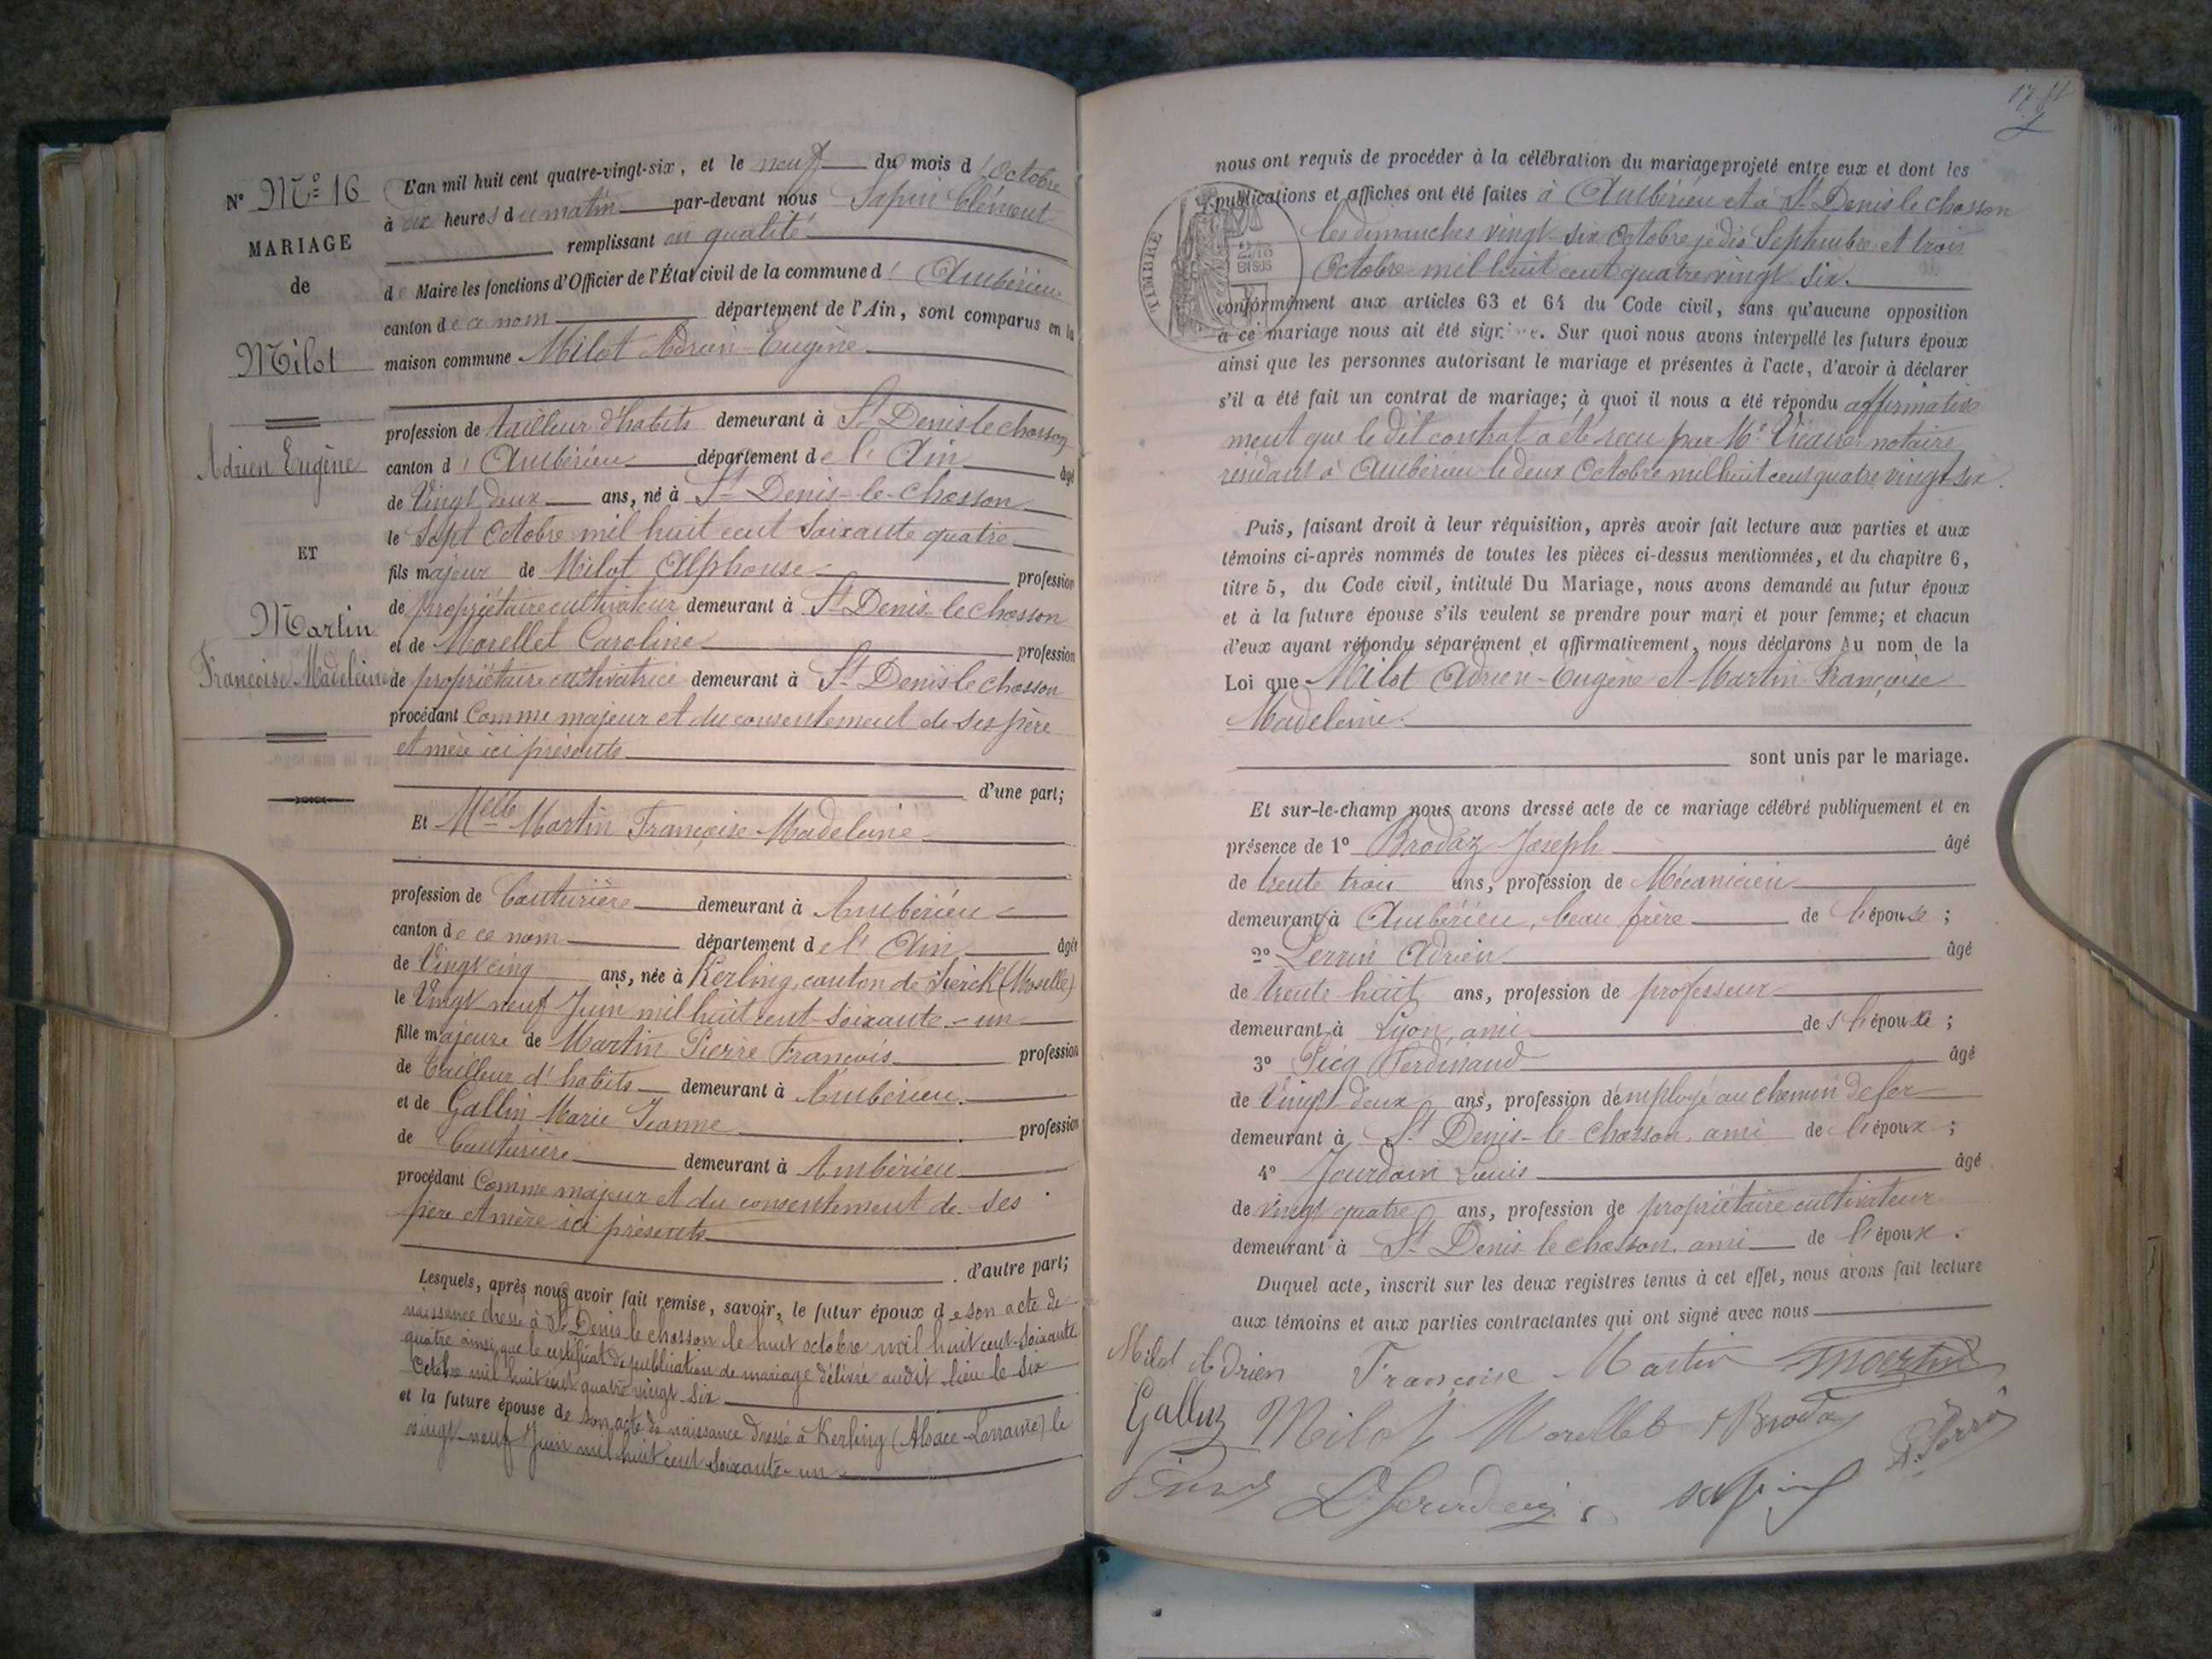 N° M° 16
MARIAGE
de
Milot
Adrien Eugène
ET
Martin
Françoise Madeleine
L'an mil huit cent quatre-vingt-six, et le neuf du mois d'Octobre
à dix heures du matin par-devant nous Sapin Clément
remplissant en qualité
de Maire les fonctions d'Officier de l'État civil de la commune d'Ambérieu
canton de ce nom département de l'Ain, sont comparus en la
maison commune Milot Adrien-Eugène
profession de tailleur d'habits demeurant à St Denis le chosson
canton d'Ambérieu département de l'Ain âgé
de Vingt deux ans, né à St Denis-le-Chosson
le Sept Octobre mil huit cent soixante quatre
fils majeur de Milot Alphonse profession
de propriétaire cultivateur demeurant à St Denis le chosson
et de Morellet Caroline profession
de propriétaire cultivatrice demeurant à St Denis le chosson
procédant Comme majeur et du consentement de ses père
et mère ici présents
d'une part;
Et Melle Martin Françoise-Madeleine
profession de Couturière demeurant à Ambérieu
canton de ce nom département de l'Ain âgée
de Vingt cinq ans, née à Kerling, canton de Sierck (Moselle)
le Vingt neuf Juin mil huit cent soixante-un
fille majeure de Martin Pierre François profession
de Tailleur d'habits demeurant à Ambérieu
et de Gallin Marie Jeanne profession
de Couturière demeurant à Ambérieu
procédant Comme majeur et du consentement de ses
père et mère ici présents
d'autre part;
Lesquels, après nous avoir fait remise, savoir, le futur époux de son acte de
naissance dressé à St Denis le chosson le huit octobre mil huit cent soixante
quatre ainsi que le certificat de publication de mariage délivré audit lieu le six
Octobre mil huit cent quatre vingt six
et la future épouse de son acte de naissance dressé à Kerling (Alsace-Lorraine) le
vingt-neuf Juin mil huit cent soixante-un
17
nous ont requis de procéder à la célébration du mariage projeté entre eux et dont les
publications et affiches ont été faites à Ambérieu et à St Denis le chosson
les dimanches vingt six Septembre et trois
Octobre mil huit cent quatre vingt six.
TIMBRE
2/10
EN SUS
conformément aux articles 63 et 64 du Code civil, sans qu'aucune opposition
à ce mariage nous ait été signifiée. Sur quoi nous avons interpellé les futurs époux
ainsi que les personnes autorisant le mariage et présentes à l'acte, d'avoir à déclarer
s'il a été fait un contrat de mariage; à quoi il nous a été répondu affirmative
ment que le dit contrat a été reçu par Me Vicaire notaire
résidant à Ambérieu le deux Octobre mil huit cent quatre vingt six.
Puis, faisant droit à leur réquisition, après avoir fait lecture aux parties et aux
témoins ci-après nommés de toutes les pièces ci-dessus mentionnées, et du chapitre 6,
titre 5, du Code civil, intitulé Du Mariage, nous avons demandé au futur époux
et à la future épouse s'ils veulent se prendre pour mari et pour femme; et chacun
d'eux ayant répondu séparément et affirmativement, nous déclarons Au nom de la
Loi que Milot Adrien-Eugène et Martin Françoise
Madeleine.
sont unis par le mariage.
Et sur-le-champ nous avons dressé acte de ce mariage célébré publiquement et en
présence de 1° Brodaz Joseph âgé
de trente trois ans, profession de Mécanicien
demeurant à Ambérieu, beau frère de l'épouse;
2° Perrin Adrien âgé
de trente huit ans, profession de professeur
demeurant à Lyon, ami de l'époux;
3° Picq Ferdinand âgé
de Vingt deux ans, profession d'employé au chemin de fer
demeurant à St Denis-le-Chosson, ami de l'époux;
4° Jourdain Louis âgé
de vingt quatre ans, profession de propriétaire cultivateur
demeurant à St Denis le chosson, ami de l'époux.
Duquel acte, inscrit sur les deux registres tenus à cet effet, nous avons fait lecture
aux témoins et aux parties contractantes qui ont signé avec nous
Milot Adrien Françoise Martin Martin
Milot Morellet Brodaz
L Jourdain Sapin